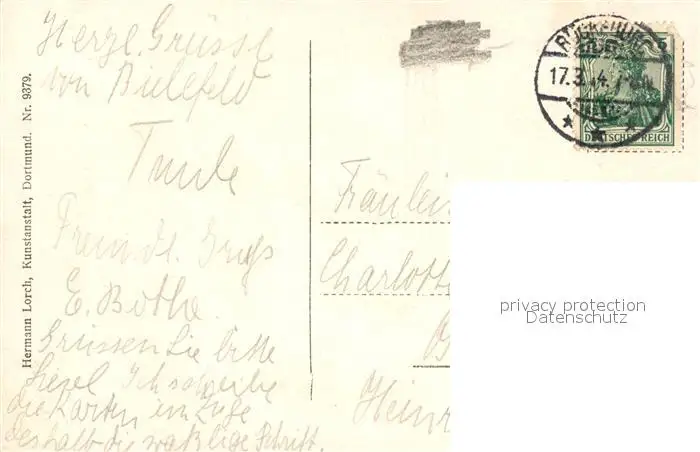 Herzl. Grüsse
von Bielefeld
Freundl. Gruß
E. Bothe.
Grüssen Sie bitte
Liesel. Ich schreibe
die Karten im Zuge
deshalb die wacklige Schrift.
Hermann Lorch, Kunstanstalt, Dortmund. Nr. 9379.
17.3. 4.
5
DEUTSCHES REICH
Fräulein
Charlotte
Heinr
privacy protection
Datenschutz